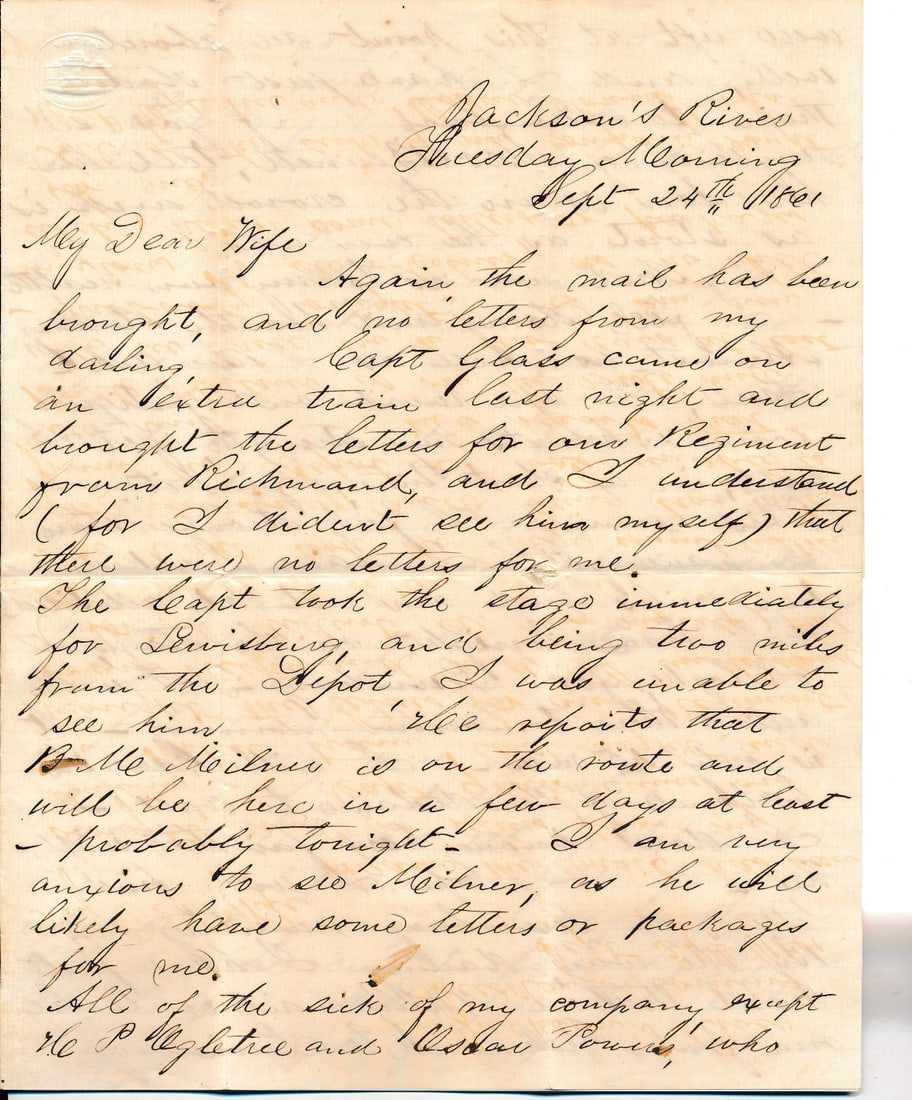 Jackson's River
Tuesday Morning
Sept 24th 1861
My Dear Wife
Again, the mail has been
brought, and no letters from my
darling, Capt Glass came on
an extra train last night and
brought the letters for our Regiment
from Richmond, and I understand
( for I dident see him myself) that
there were no letters for me.
The Capt took the stage immediately
for Lewisburg, and being two miles
from the Depot, I was unable to
see him He reports that
B Mc Milner is on the route and
will be here in a few days at least
- probably tonight - I am very
anxious to see Milner, as he will
likely have some letters or packages
for me.
All of the sick of my company, except
H P Ogletree and Oscar Powers, who